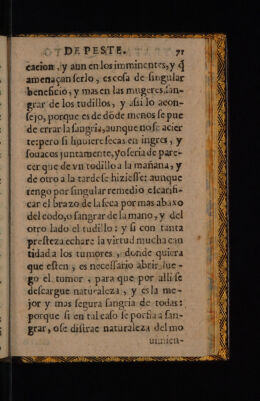 DE PESTE. 71
cacion, y aun en los imminentes, y q̃
amenaçan serlo, es cosa de singular
beneficio, y mas en las mugeres, san-
grar de los tudillos, y assi lo acon-
sejo, porque es de dõde menos se pue
de errar la sangria, aunque no se acier
te: pero si huuiere secas en ingres, y
souacos juntamente, yo seria de pare-
cer que de vn todillo a la mañana, y
de otro a la tarde se hiziesse: aunque
tengo por singular remedio escarifi-
car el brazo de la seca por mas abaxo
del codo, o sangrar de la mano, y del
otro lado el tudillo: y si con tanta
presteza echare la virtud mucha can
tidad a los tumores, donde quiera
que esten, es necessario abrir lue-
go el tumor, para que por alli se
descargue naturaleza, y es la me-
jor y mas segura sangria de todas:
porque si en tal caso se porfia a san-
grar, o se distrae naturaleza del mo
uimien-